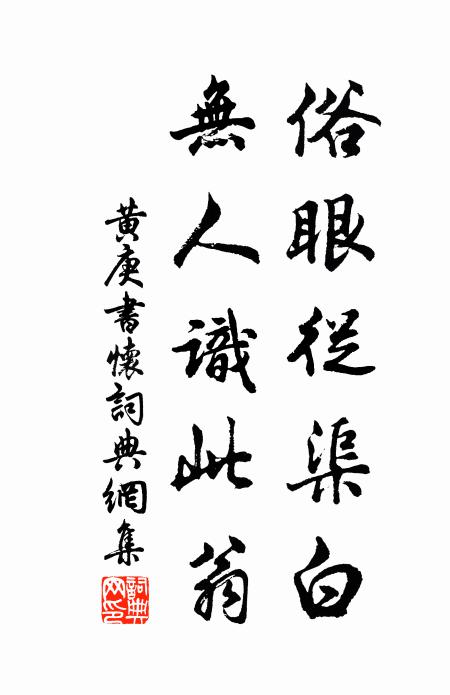 俗眼從渠白
無人識此翁
黃庚書懷詞典網集
詞典網印